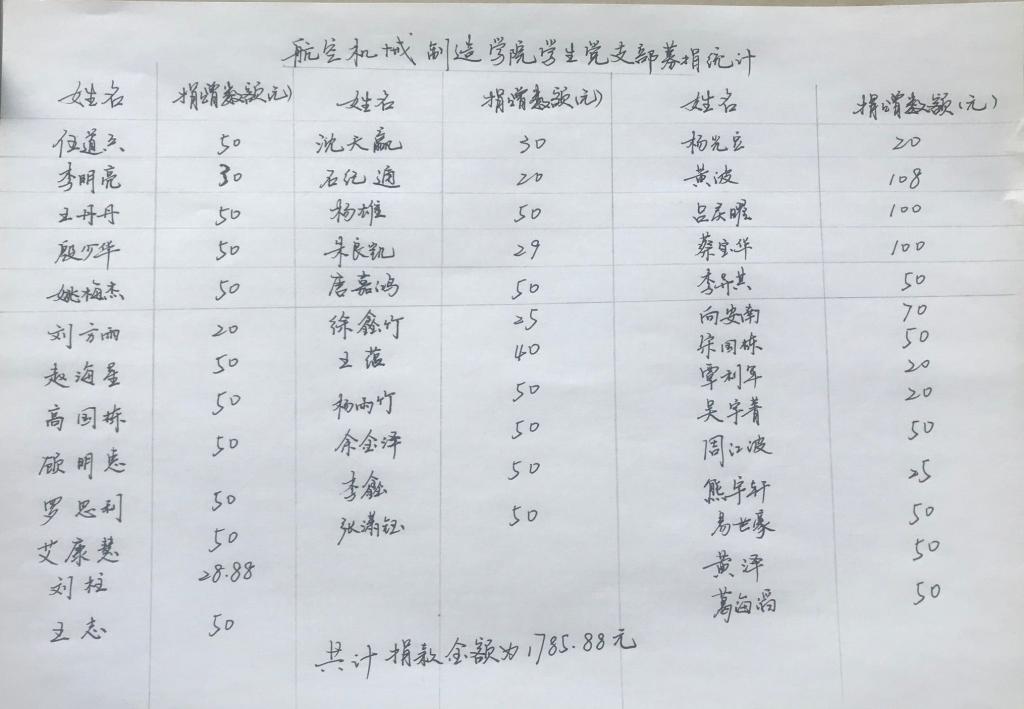 航空机械制造学院学生党支部募捐统计
姓名 捐赠数额(元) 姓名 捐赠数额(元) 姓名 捐赠数额(元)
任道立 50 沈天赢 30 杨光豆 20
李明亮 30 石纪通 20 黄波 108
王丹丹 50 杨雄 50 吕庆曜 100
殷少华 50 朱良凯 29 蔡宝华 100
姚梅杰 50 唐嘉鸿 50 李异其 50
刘方雨 20 徐鑫竹 25 向安南 70
赵海星 50 王蕴 40 宋国栋 50
高国栋 50 杨雨竹 50 覃利军 20
顾明志 50 余金泽 50 吴宇菁 20
罗思利 50 李鑫 50 周江波 50
艾康慧 50 张潇钰 50 熊宇轩 25
刘柱 28.88 易世豪 50
王志 50 黄泽 50
葛海滔 50
共计捐款金额为1785.88元